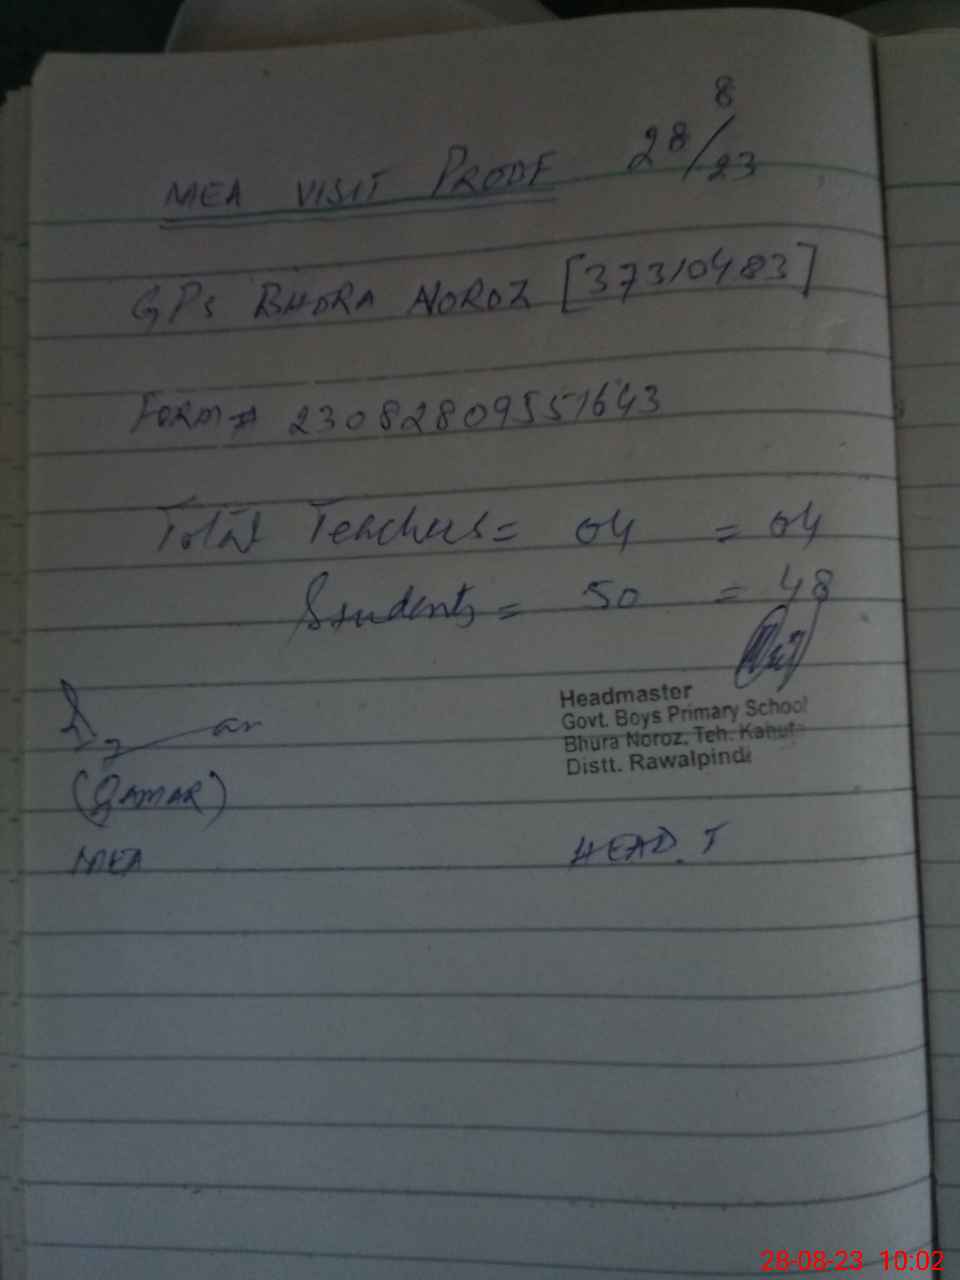 MEA VISIT PROOF 28/8/23
GPS BHORA NOROZ [37310483]
FORM # 23082809551643
Total Teachers = 04 = 04
Students = 50 = 48
Headmaster
Govt. Boys Primary School
Bhura Noroz, Teh. Kahuta
Distt. Rawalpindi
(QAMAR)
MEA HEAD. T
28-08-23 10:02